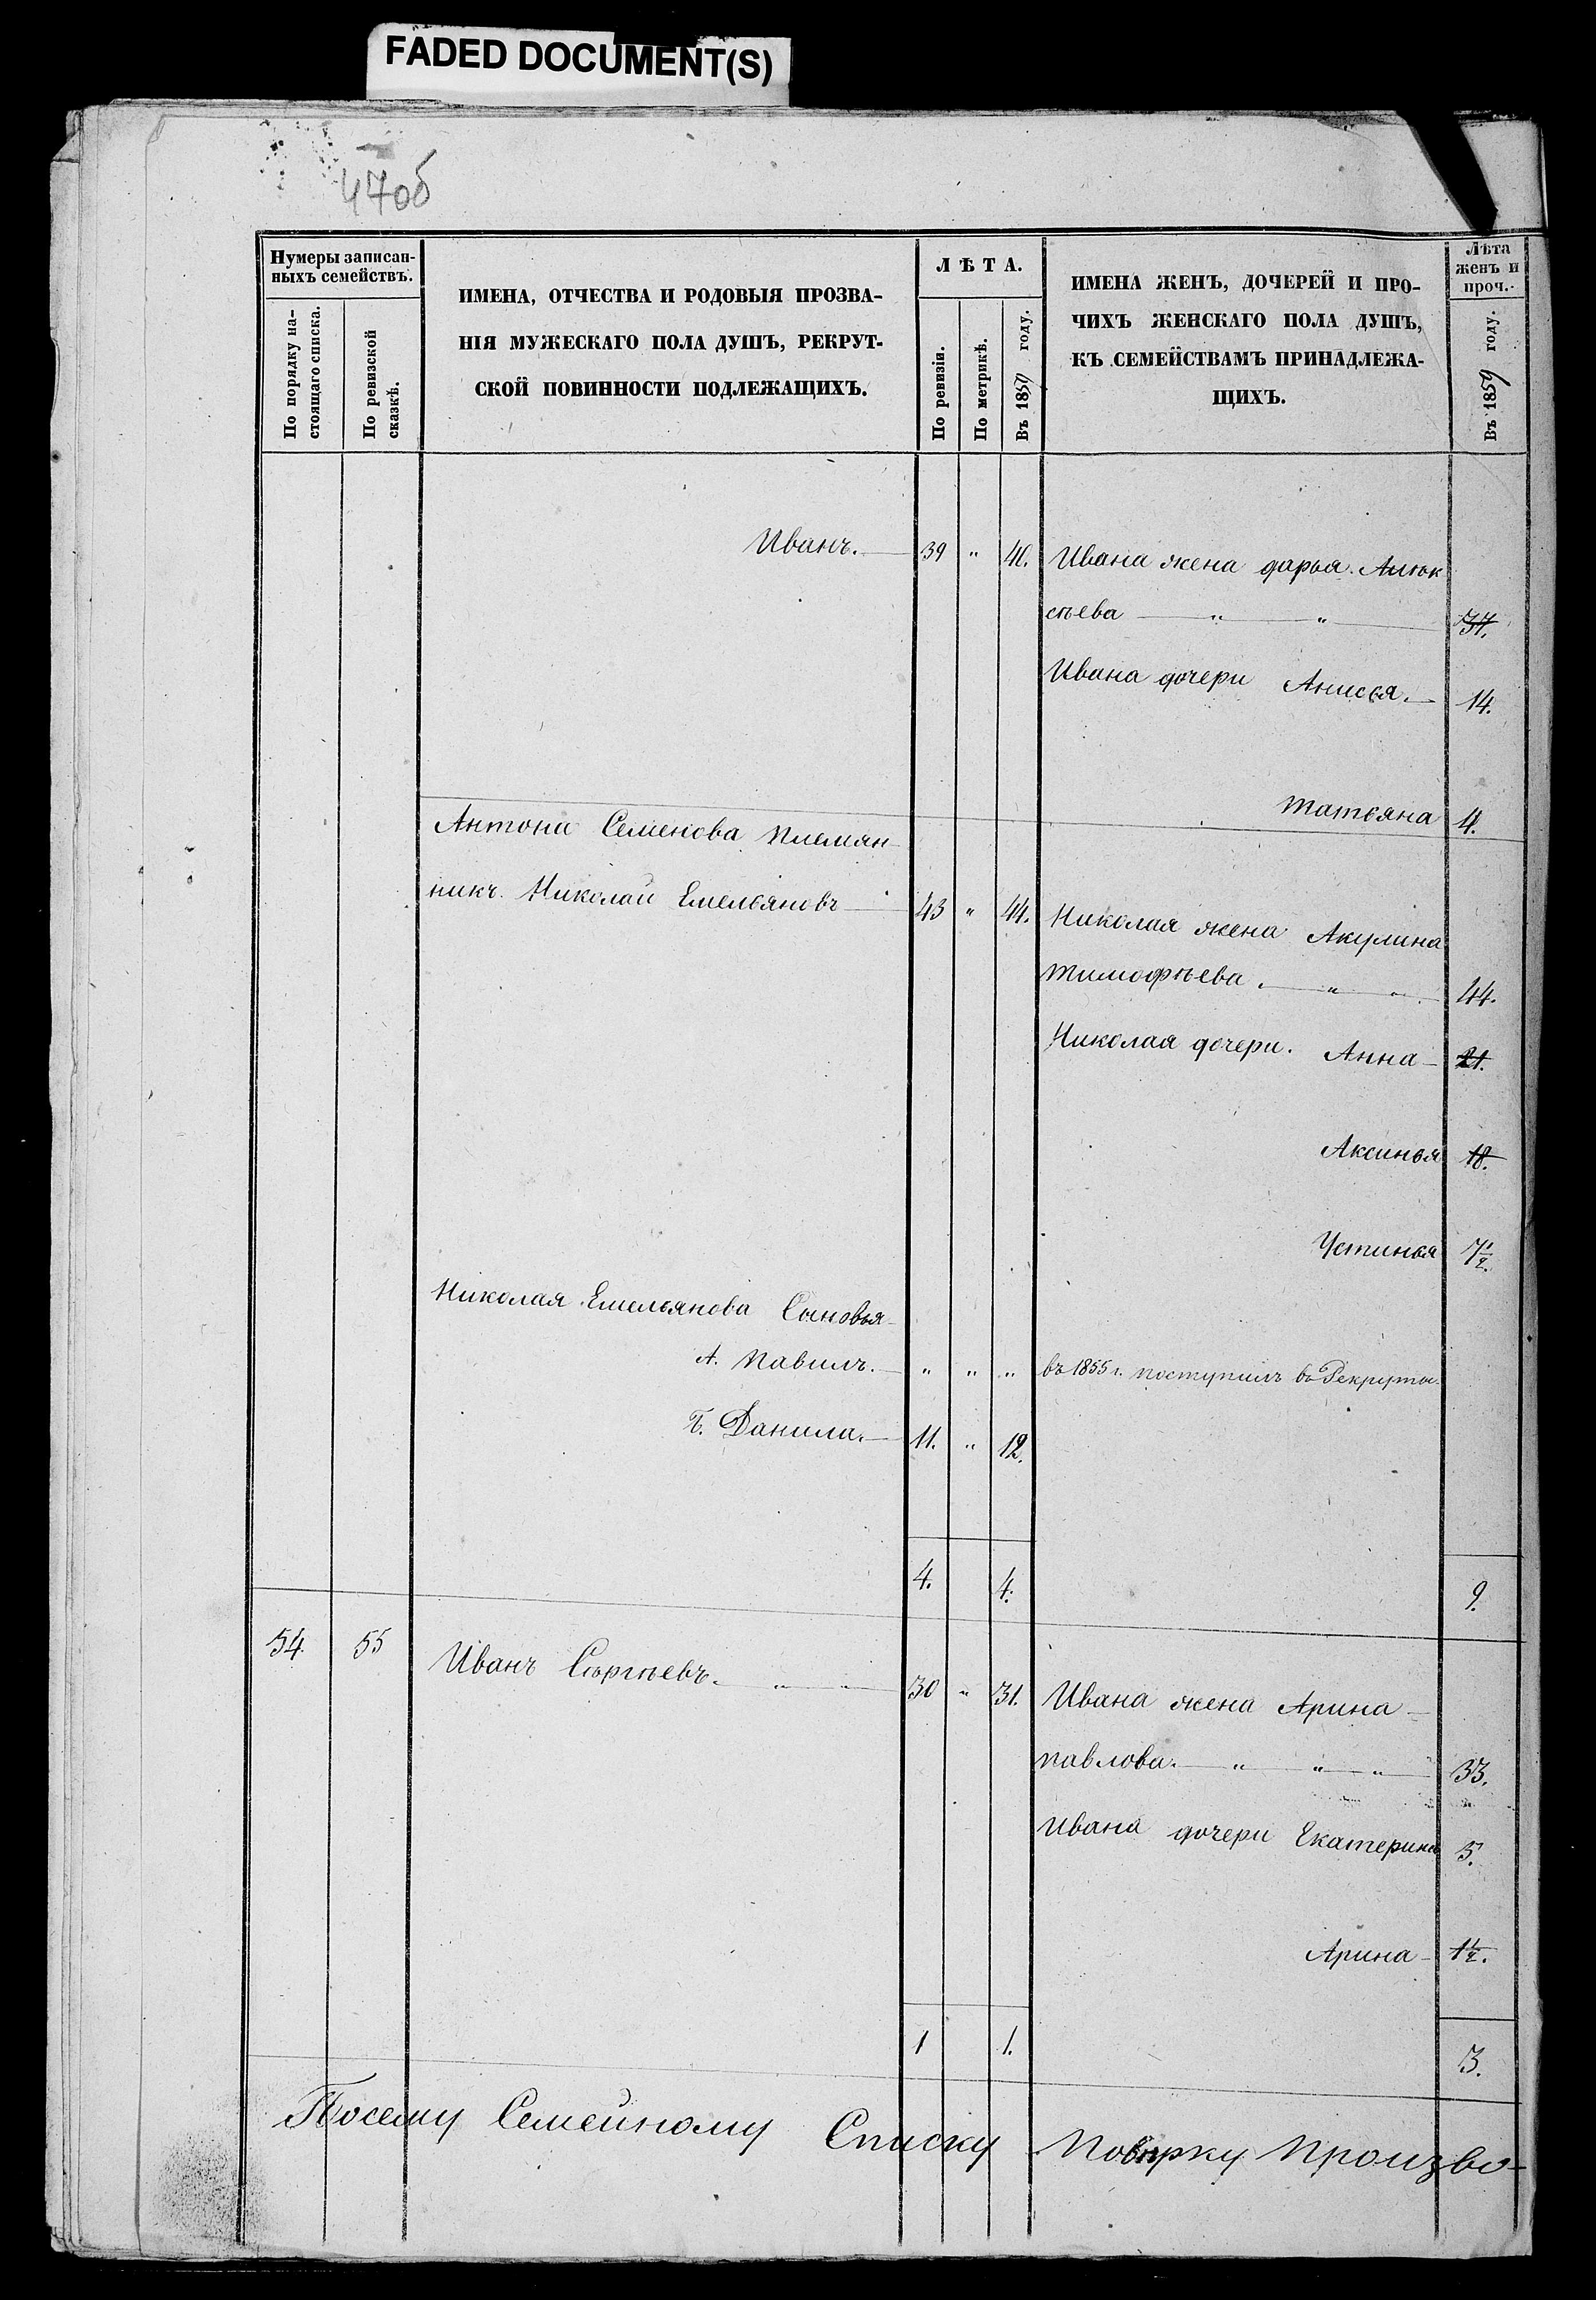 FADED DOCUMENT(S)
47об
Нумеры записан-
ныхъ семействъ.
По порядку на-
стоящаго списка.
По ревизской
сказкѣ.
ИМЕНА, ОТЧЕСТВА И РОДОВЫЯ ПРОЗВА-
НІЯ МУЖЕСКАГО ПОЛА ДУШЪ, РЕКРУТ-
СКОЙ ПОВИННОСТИ ПОДЛЕЖАЩИХЪ.
ЛѢТА.
По ревизіи.
По метрикѣ.
Въ 1859 году.
ИМЕНА ЖЕНЪ, ДОЧЕРЕЙ И ПРО-
ЧИХЪ ЖЕНСКАГО ПОЛА ДУШЪ,
КЪ СЕМЕЙСТВАМЪ ПРИНАДЛЕЖА-
ЩИХЪ.
Лѣта
женъ и
проч.
Въ 1859 году.
Иванъ. 39 " 40. Ивана жена дарья Алек
сѣева " " 37.
Ивана дочери Анисья. 14.
татьяна 4.
Антона Семенова племян-
никъ Николай Емельяновъ 43 " 44. Николая жена Акулина
тимофѣева. " " 44.
Николая дочери. Анна 21.
Аксинья 18.
Устинья 7 1/2.
Николая Емельянова Сыновья
А. Павелъ. " " " въ 1855 г. поступилъ въ Рекруты.
Б. Данила. 11. " 12.
4. 4. 9.
54. 55 Иванъ Сергѣевъ. " " 30 " 31. Ивана жена Арина
павлова. " " " 33.
Ивана дочери Екатерина 5.
Арина 1 1/2.
1 1. 3.
Посему Семейному Списку повѣрку произво-